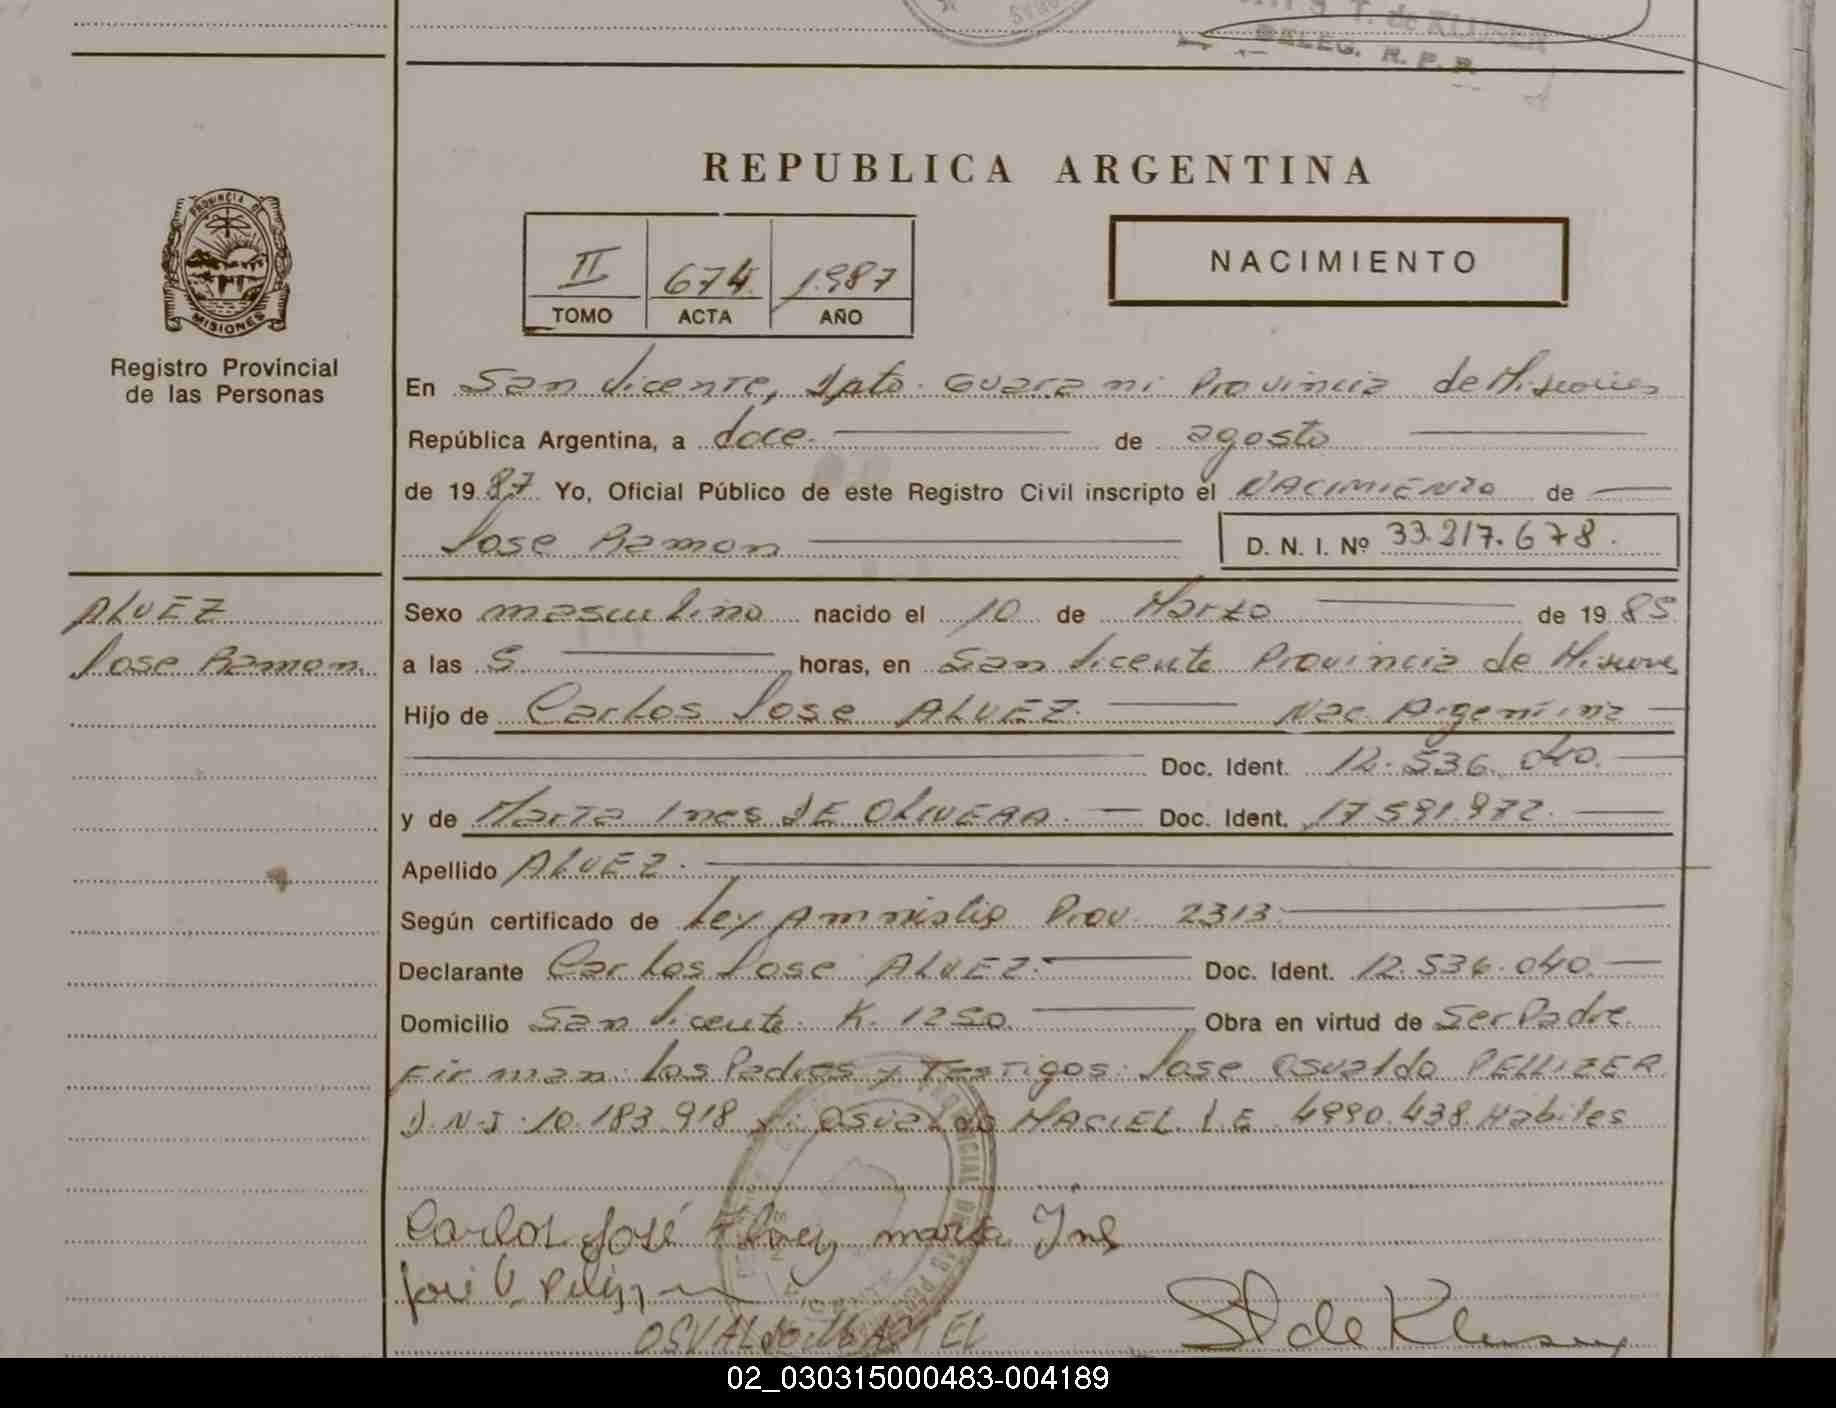 T. de KLUSEN
DELEG. R. P. P.
REPUBLICA ARGENTINA
PROVINCIA DE
MISIONES
Registro Provincial
de las Personas
II 674 1987
TOMO ACTA AÑO
NACIMIENTO
En San Vicente, Dpto. Guarani Provincia de Misiones
República Argentina, a doce. de agosto
de 19 87 Yo, Oficial Público de este Registro Civil inscripto el NACIMIENTO de
Jose Ramon
D. N. I. Nº 33.217.678.
ALVEZ
Jose Ramon.
Sexo masculino nacido el 10 de Marzo de 19 85
a las 5 horas, en San Vicente Provincia de Misiones
Hijo de Carlos Jose ALVEZ. Nac. Argentina
Doc. Ident. 12.536.040.
y de Marta Ines DE OLIVERA. Doc. Ident. 17.591.972.
Apellido ALVEZ.
Según certificado de Ley Amnistia Prov. 2313.
Declarante Carlos Jose ALVEZ. Doc. Ident. 12.536.040.
Domicilio San Vicente. K. 1250. Obra en virtud de Ser Padre.
Firman: los Padres y Testigos: Jose Osvaldo PELLIZER.
D.N.I. 10.183.918 y: Osvaldo MACIEL L.E. 4990.438. Habiles
Carlos José Alvez maria Ine
José O. Pelizzer
OSVALdo MACIEL
St de Klusen
02_030315000483-004189